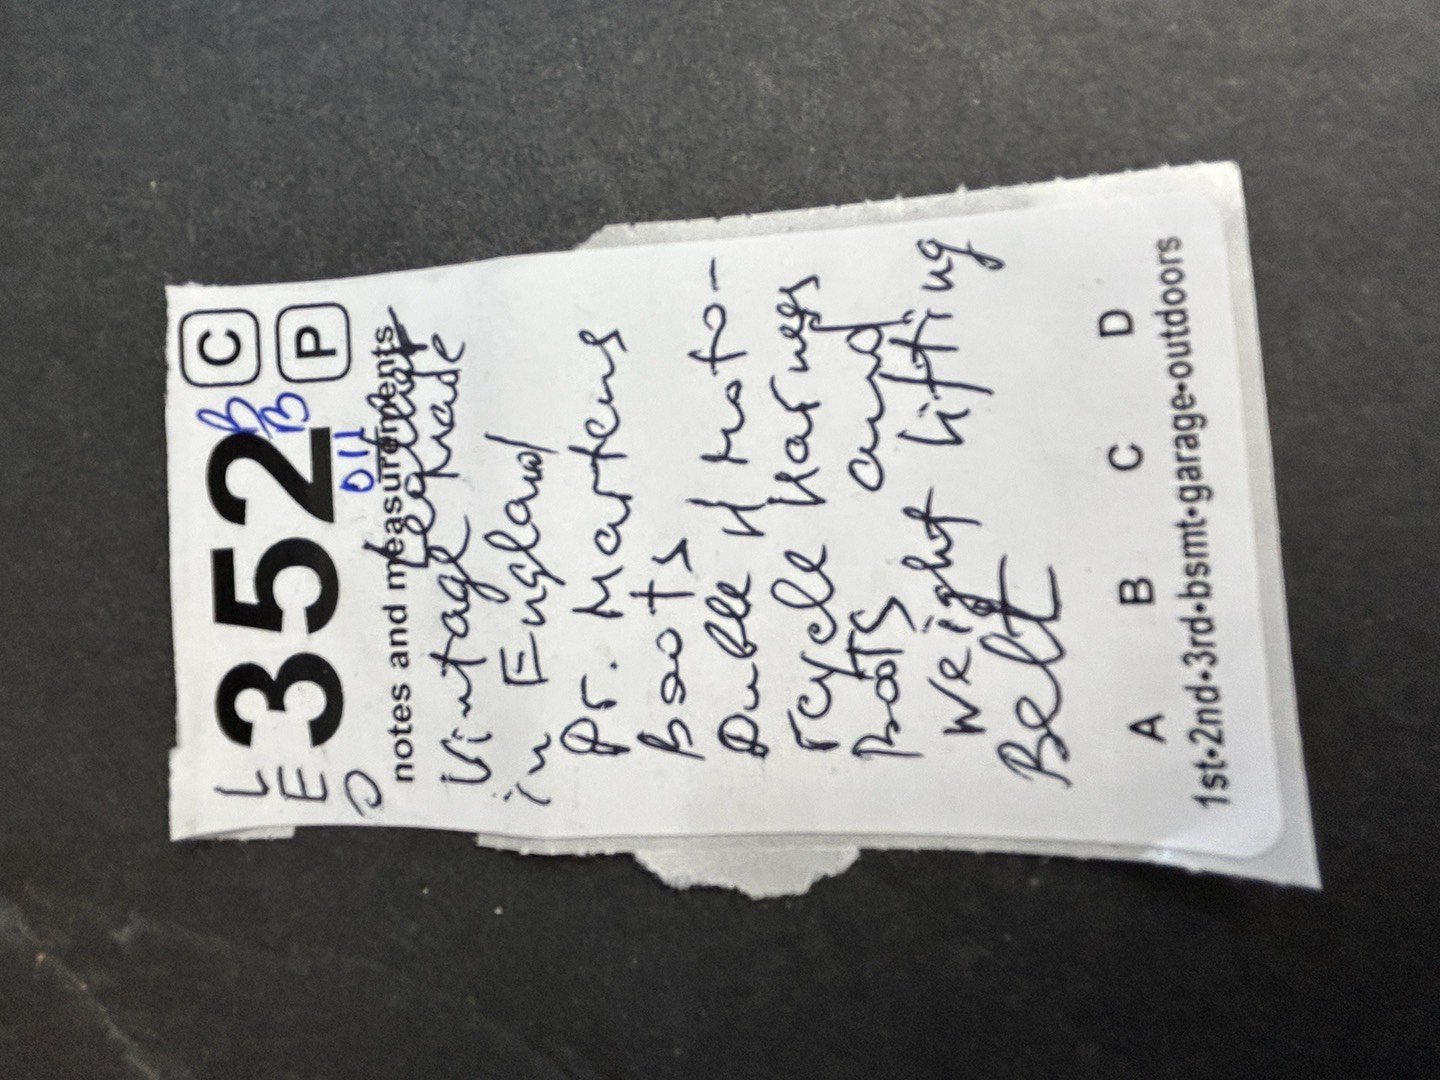 L 352 B C
E B P
O 011
notes and measurements
Vintage Made
in England
Dr. Martens
Boots
Duble H moto-
rcycle Harness
Boots and
Weight lifting
Belt
A B C D
1st•2nd•3rd•bsmt•garage•outdoors